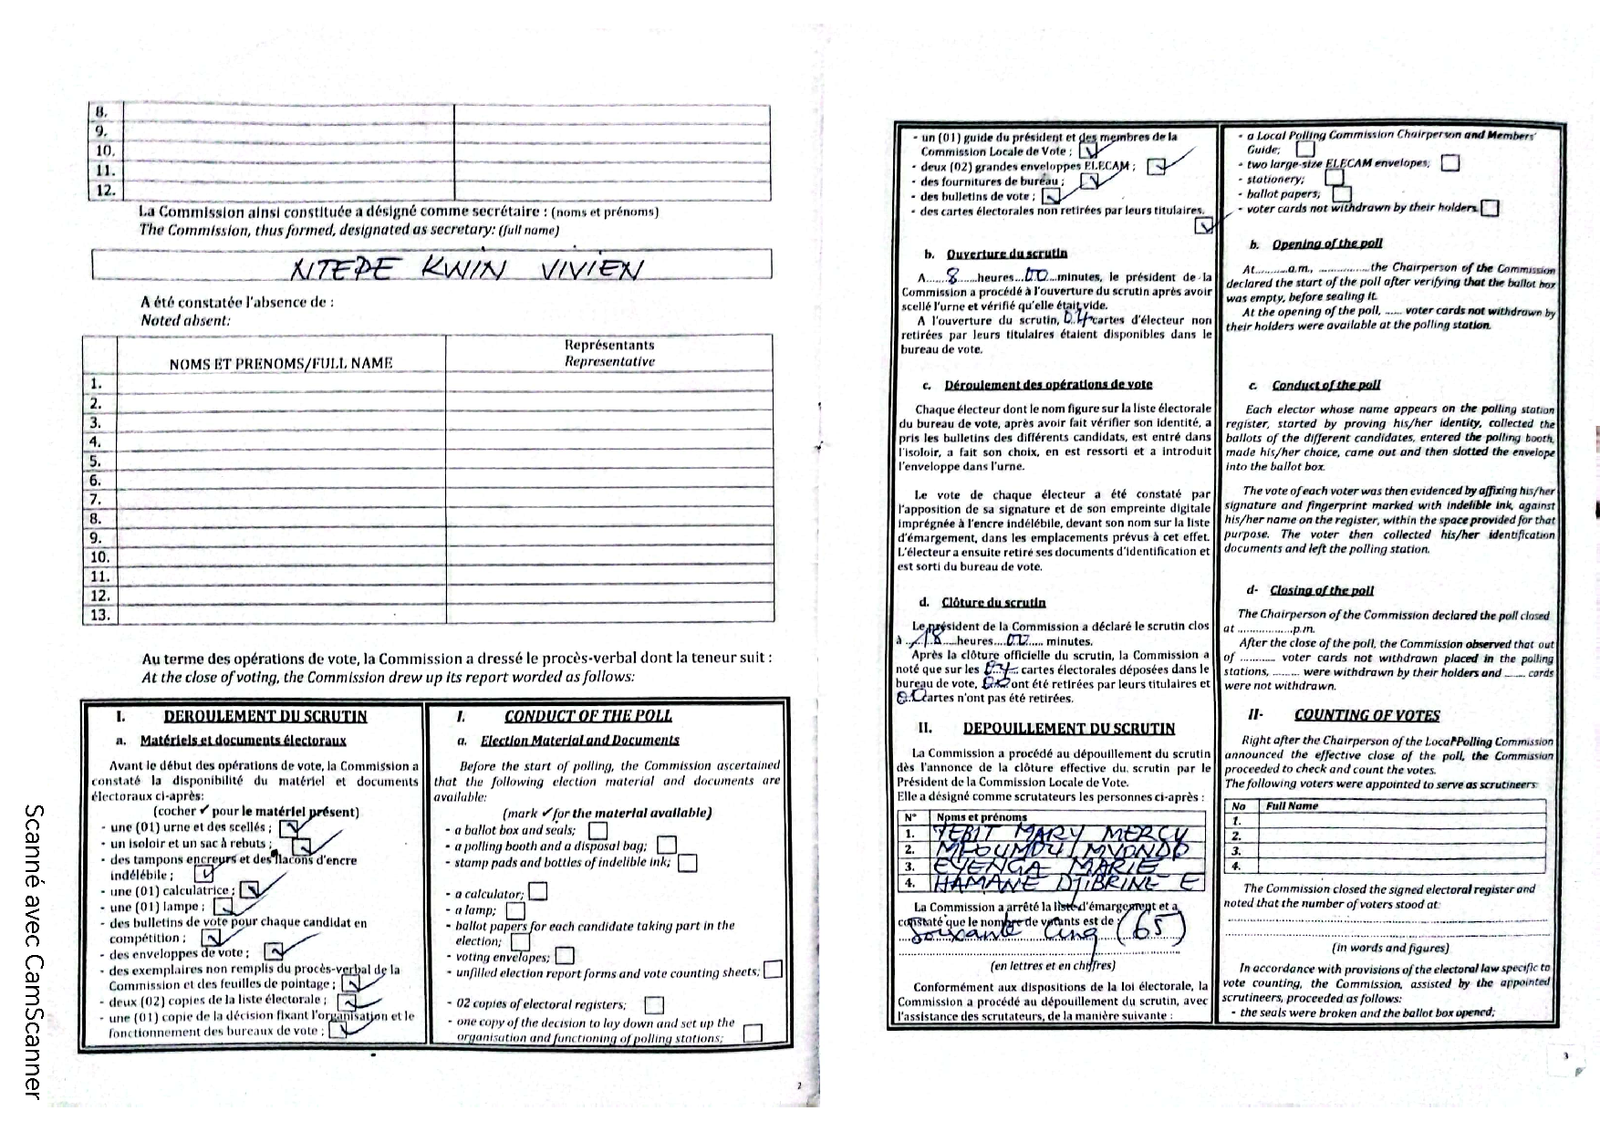 8.
9.
10.
11.
12.
La Commission ainsi constituée a désigné comme secrétaire : (noms et prénoms)
The Commission, thus formed, designated as secretary: (full name)
NTEPE KWIN VIVIEN
A été constatée l'absence de :
Noted absent:
NOMS ET PRENOMS/FULL NAME
Représentants
Representative
1.
2.
3.
4.
5.
6.
7.
8.
9.
10.
11.
12.
13.
Au terme des opérations de vote, la Commission a dressé le procès-verbal dont la teneur suit :
At the close of voting, the Commission drew up its report worded as follows:
I. DEROULEMENT DU SCRUTIN
a. Matériels et documents électoraux
Avant le début des opérations de vote, la Commission a
constaté la disponibilité du matériel et documents
électoraux ci-après:
(cocher ✓ pour le matériel présent)
- une (01) urne et des scellés ;
- un isoloir et un sac à rebuts ;
- des tampons encreurs et des flacons d'encre
indélébile ;
- une (01) calculatrice ;
- une (01) lampe ;
- des bulletins de vote pour chaque candidat en
compétition ;
- des enveloppes de vote ;
- des exemplaires non remplis du procès-verbal de la
Commission et des feuilles de pointage ;
- deux (02) copies de la liste électorale ;
- une (01) copie de la décision fixant l'organisation et le
fonctionnement des bureaux de vote ;
I. CONDUCT OF THE POLL
a. Election Material and Documents
Before the start of polling, the Commission ascertained
that the following election material and documents are
available:
(mark ✓ for the material available)
- a ballot box and seals;
- a polling booth and a disposal bag;
- stamp pads and bottles of indelible ink;
- a calculator;
- a lamp;
- ballot papers for each candidate taking part in the
election;
- voting envelopes;
- unfilled election report forms and vote counting sheets;
- 02 copies of electoral registers;
- one copy of the decision to lay down and set up the
organisation and functioning of polling stations;
2
Scanné avec CamScanner
- un (01) guide du président et des membres de la
Commission Locale de Vote ;
- deux (02) grandes enveloppes ELECAM ;
- des fournitures de bureau ;
- des bulletins de vote ;
- des cartes électorales non retirées par leurs titulaires.
b. Ouverture du scrutin
A......8......heures...00...minutes, le président de la
Commission a procédé à l'ouverture du scrutin après avoir
scellé l'urne et vérifié qu'elle était vide.
A l'ouverture du scrutin, cartes d'électeur non
retirées par leurs titulaires étaient disponibles dans le
bureau de vote.
c. Déroulement des opérations de vote
Chaque électeur dont le nom figure sur la liste électorale
du bureau de vote, après avoir fait vérifier son identité, a
pris les bulletins des différents candidats, est entré dans
l'isoloir, a fait son choix, en est ressorti et a introduit
l'enveloppe dans l'urne.
Le vote de chaque électeur a été constaté par
l'apposition de sa signature et de son empreinte digitale
imprégnée à l'encre indélébile, devant son nom sur la liste
d'émargement, dans les emplacements prévus à cet effet.
L'électeur a ensuite retiré ses documents d'identification et
est sorti du bureau de vote.
d. Clôture du scrutin
Le président de la Commission a déclaré le scrutin clos
à ...18...heures...00... minutes.
Après la clôture officielle du scrutin, la Commission a
noté que sur les cartes électorales déposées dans le
bureau de vote, ont été retirées par leurs titulaires et
cartes n'ont pas été retirées.
II. DEPOUILLEMENT DU SCRUTIN
La Commission a procédé au dépouillement du scrutin
dès l'annonce de la clôture effective du scrutin par le
Président de la Commission Locale de Vote.
Elle a désigné comme scrutateurs les personnes ci-après :
N° Noms et prénoms
1. TEBIT MARY MERCY
2. MFOUMOU MVONDO
3. EYENGA MARIE
4. HAMANE DJIBRINE E
La Commission a arrêté la liste d'émargement et a
constaté que le nombre de votants est de :
Soixante Cinq (65)
(en lettres et en chiffres)
Conformément aux dispositions de la loi électorale, la
Commission a procédé au dépouillement du scrutin, avec
l'assistance des scrutateurs, de la manière suivante :
- a Local Polling Commission Chairperson and Members'
Guide;
- two large-size ELECAM envelopes;
- stationery;
- ballot papers;
- voter cards not withdrawn by their holders
b. Opening of the poll
At..........a.m., ................the Chairperson of the Commission
declared the start of the poll after verifying that the ballot box
was empty, before sealing it.
At the opening of the poll, ...... voter cards not withdrawn by
their holders were available at the polling station.
c. Conduct of the poll
Each elector whose name appears on the polling station
register, started by proving his/her identity, collected the
ballots of the different candidates, entered the polling booth,
made his/her choice, came out and then slotted the envelope
into the ballot box.
The vote of each voter was then evidenced by affixing his/her
signature and fingerprint marked with indelible ink, against
his/her name on the register, within the space provided for that
purpose. The voter then collected his/her identification
documents and left the polling station.
d- Closing of the poll
The Chairperson of the Commission declared the poll closed
at .................p.m.
After the close of the poll, the Commission observed that out
of ........... voter cards not withdrawn placed in the polling
stations, ......... were withdrawn by their holders and ....... cards
were not withdrawn.
II- COUNTING OF VOTES
Right after the Chairperson of the Local Polling Commission
announced the effective close of the poll, the Commission
proceeded to check and count the votes.
The following voters were appointed to serve as scrutineers:
No Full Name
1.
2.
3.
4.
The Commission closed the signed electoral register and
noted that the number of voters stood at:
(in words and figures)
In accordance with provisions of the electoral law specific to
vote counting, the Commission, assisted by the appointed
scrutineers, proceeded as follows:
- the seals were broken and the ballot box opened;
3